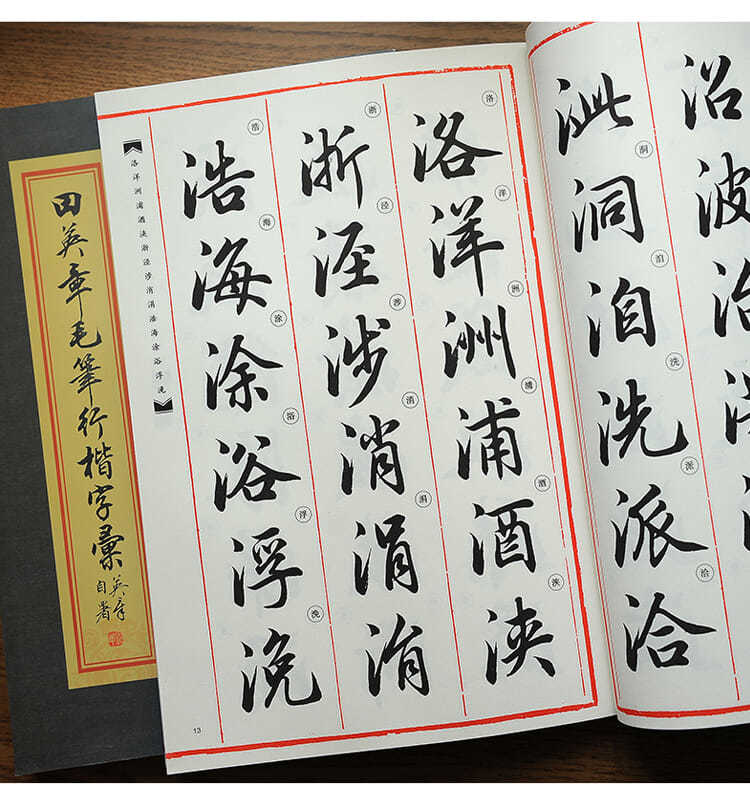 田英章毛筆行楷字彙
英章
自署
沿波治
泚洞洎洗派洽
洞
洎
洗
派
洽
洛洋洲浦酒浃
洛
洋
洲
浦
酒
浃
浙泾涉消涓涓
浙
泾
涉
消
涓
浩海涂浴浮浼
浩
海
涂
浴
浮
浼
洛洋洲浦酒浃浙泾涉消涓浩海涂浴浮浼
13